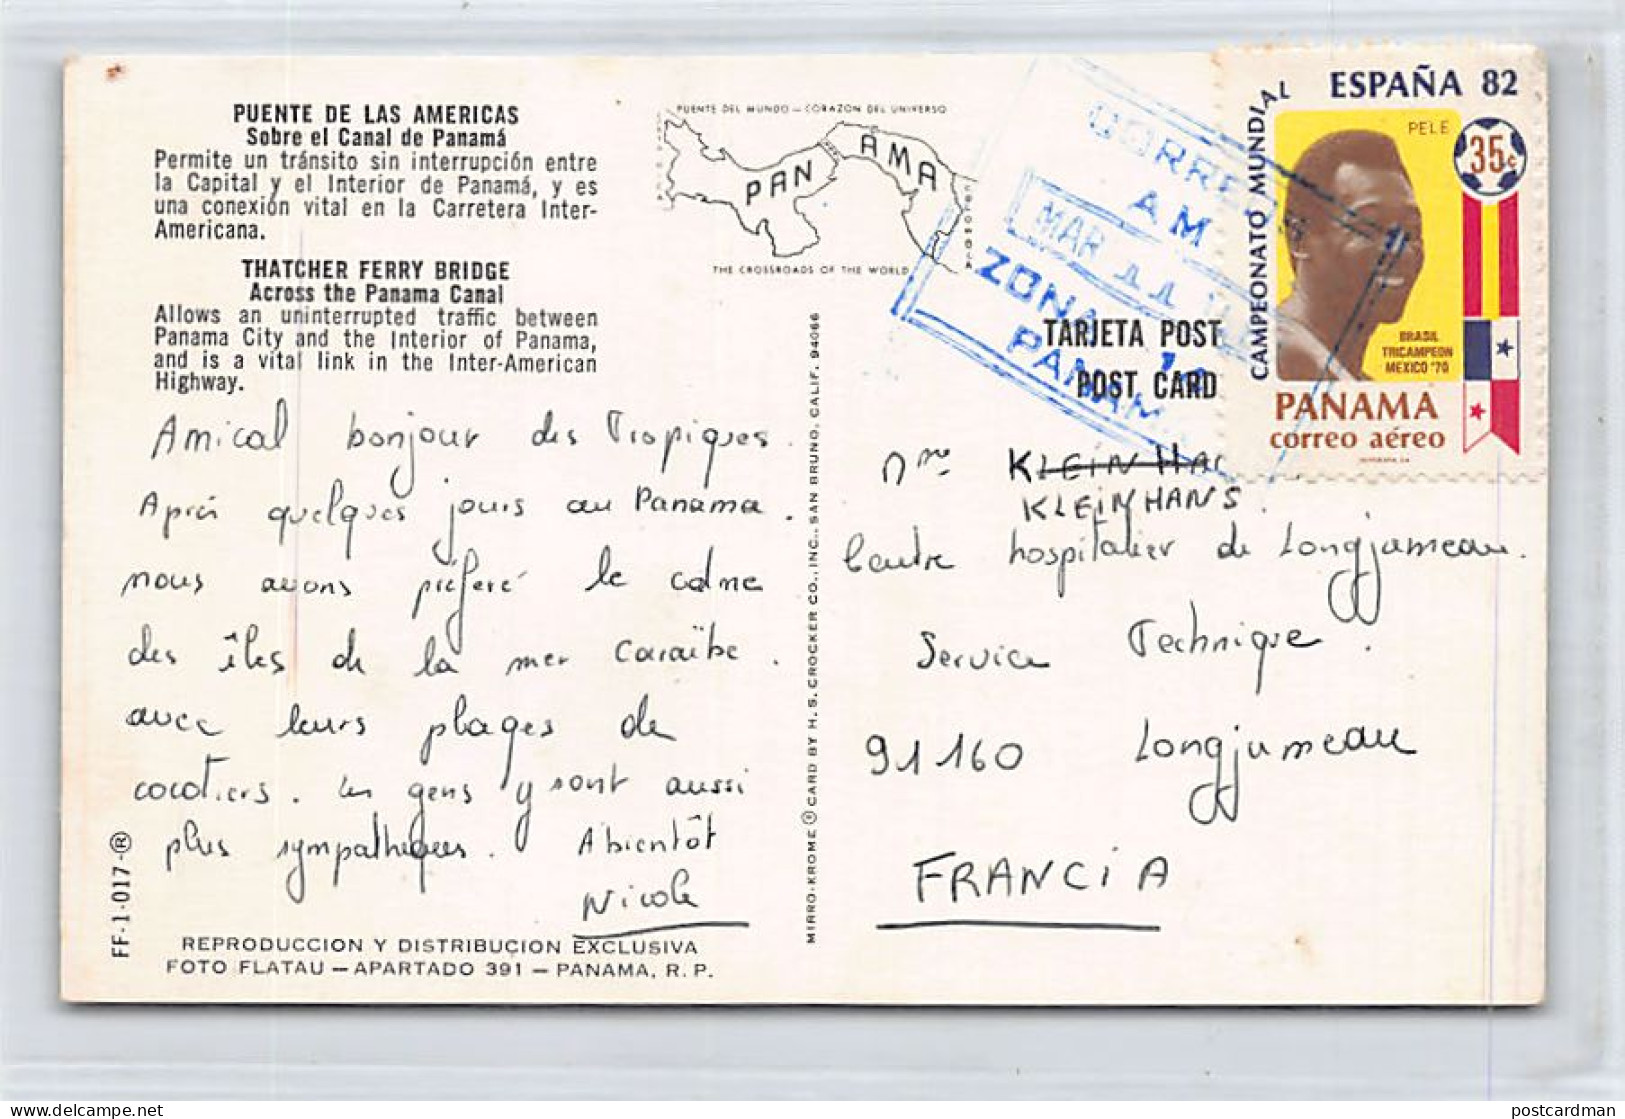 PUENTE DE LAS AMERICAS
Sobre el Canal de Panamá
Permite un tránsito sin interrupción entre
la Capital y el Interior de Panamá, y es
una conexión vital en la Carretera Inter-
Americana.
THATCHER FERRY BRIDGE
Across the Panama Canal
Allows an uninterrupted traffic between
Panama City and the Interior of Panama,
and is a vital link in the Inter-American
Highway.
PUENTE DEL MUNDO — CORAZON DEL UNIVERSO
PANAMA
THE CROSSROADS OF THE WORLD
CORRE
AM
MAR 11
ZONA
PANAMA
TARJETA POST
POST CARD
ESPAÑA 82
CAMPEONATO MUNDIAL
PELE
35c
BRASIL
TRICAMPEON
MEXICO '70
PANAMA
correo aéreo
Amical bonjour des Tropiques.
Après quelques jours au Panama.
nous avons préferé le calme
des îles de la mer Caraïbe.
avec leurs plages de
cocotiers. Les gens y sont aussi
plus sympathiques. A bientôt
Nicole
REPRODUCCION Y DISTRIBUCION EXCLUSIVA
FOTO FLATAU — APARTADO 391 — PANAMA, R. P.
FF-1-017-®
MIRRO-KROME ® CARD BY H. S. CROCKER CO., INC., SAN BRUNO, CALIF. 94066
Mme KLEINHA
KLEINHANS.
Centre hospitalier de Longjumeau.
Service Technique.
91160 Longjumeau
FRANCIA
delcampe.net
postcardman